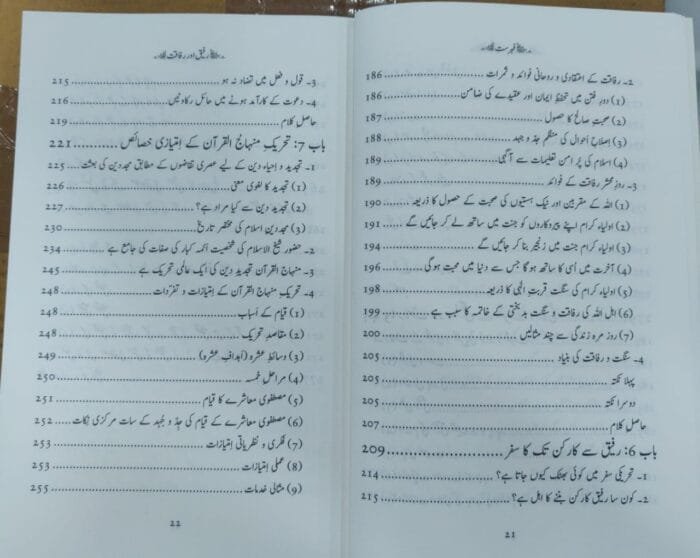 فہرست
2۔ رفاقت کے اعتقادی و روحانی فوائد و ثمرات ... 186
(1) دورِ فتن میں تحفظِ ایمان اور عقیدے کی ضامن ... 186
(2) صحبتِ صالح کا حصول ... 187
(3) اصلاحِ اَحوال کی منظم جد و جہد ... 188
(4) اسلام کی پر امن تعلیمات سے آگہی ... 189
3۔ روزِ محشر رفاقت کے فوائد ... 189
(1) اللہ کے مقربین اور نیک ہستیوں کی صحبت کے حصول کا ذریعہ ... 190
(2) اولیاء کرام اپنے پیروکاروں کو جنت میں ساتھ لے کر جائیں گے ... 191
(3) اولیاء کرام جنت میں زنجیر بنا کر جائیں گے ... 194
(4) آخرت میں اُسی کا ساتھ ہوگا جس سے دنیا میں محبت ہوگی ... 196
(5) اولیاء کرام کی سنگت قربتِ الٰہی کا ذریعہ ... 198
(6) اہل اللہ کی رفاقت و سنگت بدبختی کے خاتمہ کا سبب ہے ... 199
(7) روز مرہ زندگی سے چند مثالیں ... 200
4۔ سنگت و رفاقت کی بنیاد ... 205
پہلا نکتہ ... 205
دوسرا نکتہ ... 205
حاصل کلام ... 207
باب 6: رفیق سے کارکن تک کا سفر ... 209
1۔ تحریکی سفر میں کوئی بھٹک کیوں جاتا ہے؟ ... 214
2۔ کون سا رفیق کارکن بننے کا اہل ہے؟ ... 215
21
رفیق اور رفاقت
3۔ قول و فعل میں تضاد نہ ہو ... 215
4۔ دعوت کے کارآمد ہونے میں حائل رکاوٹیں ... 216
حاصل کلام ... 219
باب 7: تحریک منہاج القرآن کے اِمتیازی خصائص ... 221
1۔ تجدید و اِحیاء دین کے لیے عصری تقاضوں کے مطابق مجددین کی بعثت ... 225
(1) تجدید کا لغوی معنی ... 226
(2) تجدید دین سے کیا مراد ہے؟ ... 227
(3) مجددین اسلام کی مختصر تاریخ ... 230
2۔ حضور شیخ الاسلام کی شخصیت ائمہ کبار کی صفات کی جامع ہے ... 234
3۔ منہاج القرآن تجدید دین کی ایک عالمی تحریک ہے ... 245
4۔ تحریک منہاج القرآن کے اِمتیازات و تفرّدات ... 248
(1) قیام کے اَسباب ... 248
(2) مقاصدِ تحریک ... 248
(3) وسائطِ عشرہ (اَہدافِ عشرہ) ... 249
(4) مراحلِ خمسہ ... 250
(5) مصطفوی معاشرے کا قیام ... 251
(6) مصطفوی معاشرے کے قیام کی جِدّ و جُہد کے سات مرکزی نِکات ... 252
(7) فکری و نظریاتی اِمتیازات ... 253
(8) عملی اِمتیازات ... 253
(9) مثالی خدمات ... 255
22